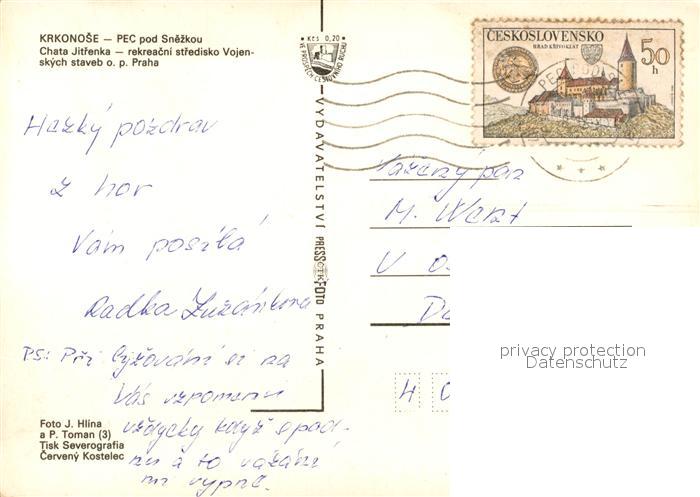 KRKONOŠE — PEC pod Sněžkou
Chata Jitřenka — rekreační středisko Vojen-
ských staveb o. p. Praha
Kčs 0,20
VE PROSPĚCH CESTOVNÍHO RUCHU
ČESKOSLOVENSKO
HRAD KŘIVOKLÁT
50
h
Hezký pozdrav
z hor
Vám posílá
Radka
PS: Při lyžování si na
Vás vzpomenu
vždycky když spad-
nu a to vázání
mi vypne.
Foto J. Hlína
a P. Toman (3)
Tisk Severografia
Červený Kostelec
VYDAVATELSTVÍ PRESSFOTO PRAHA
Vážený pan
M.
V
4 0
privacy protection
Datenschutz